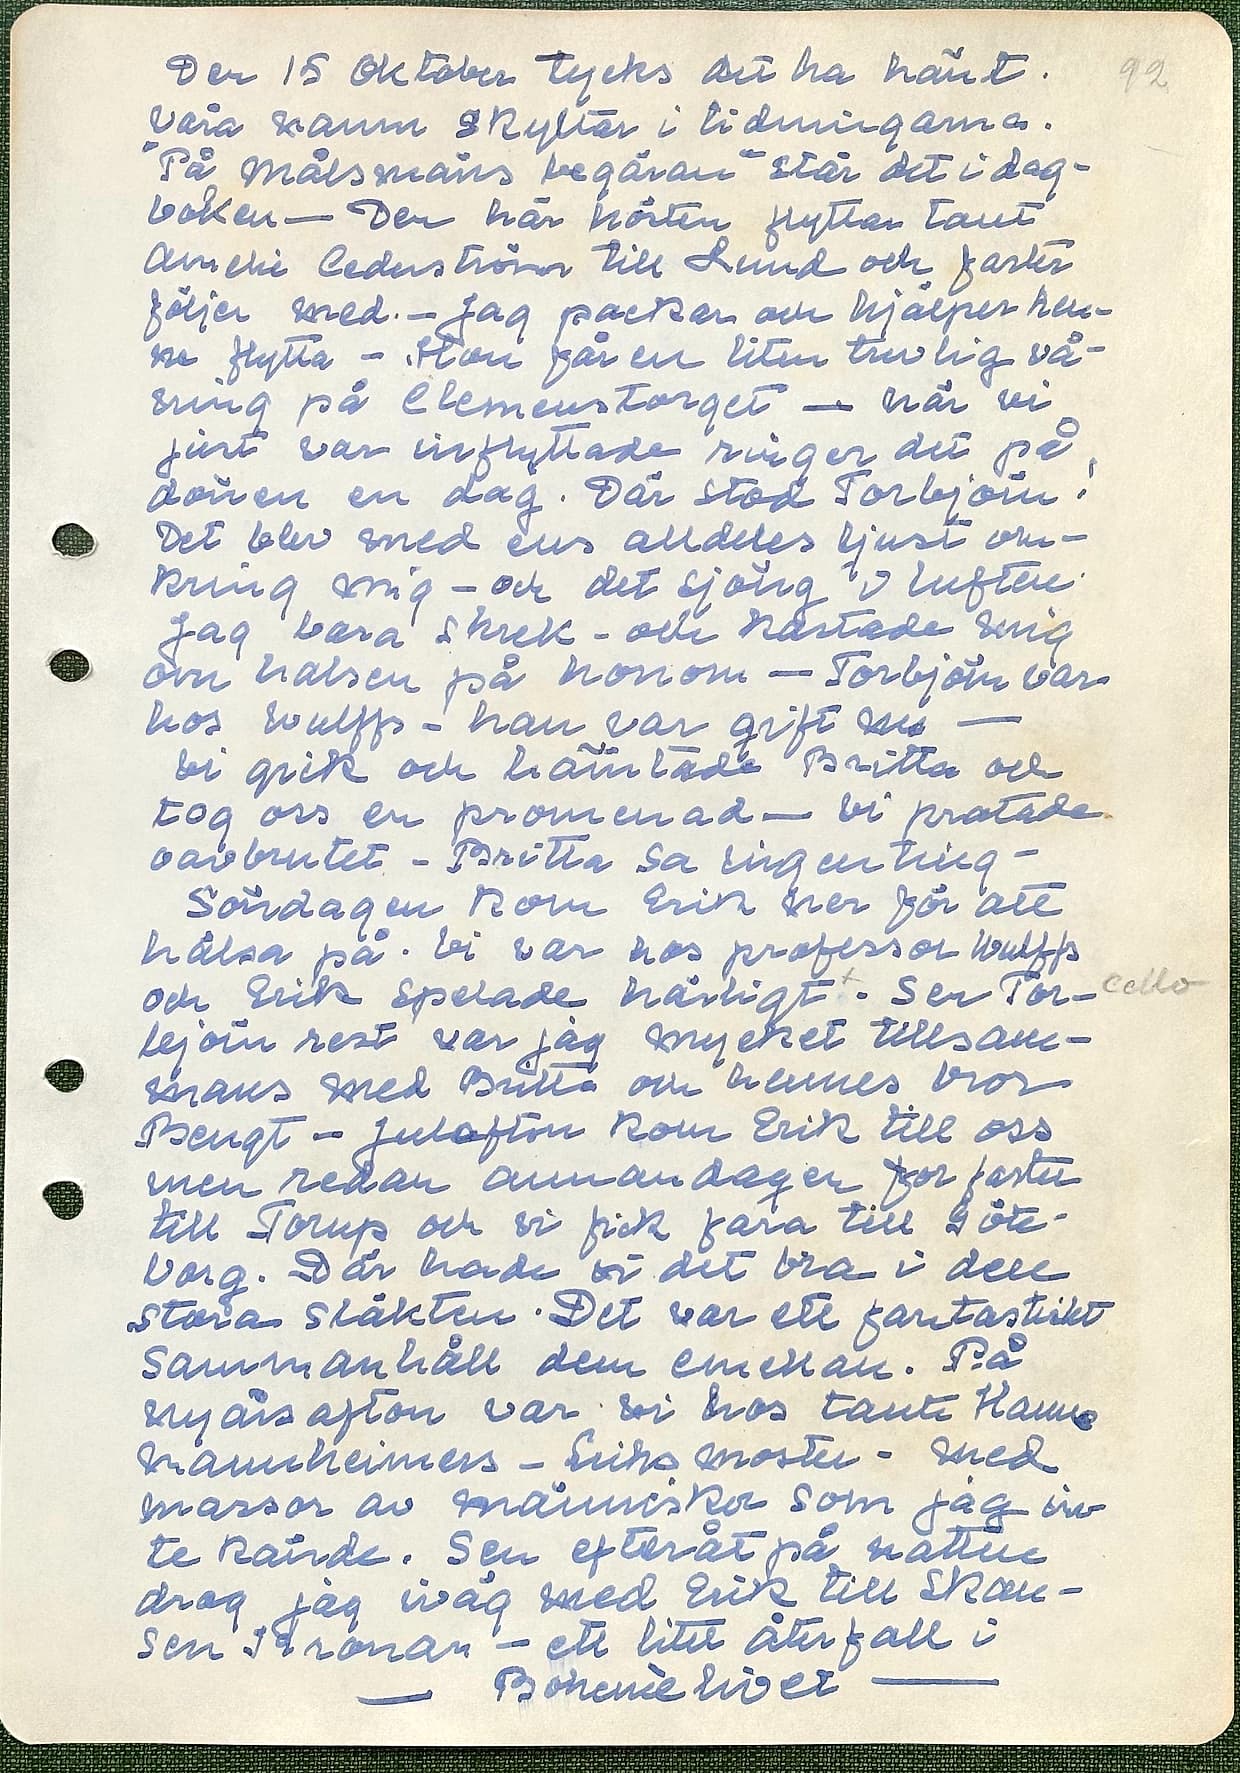 92
Den 15 Oktober tycks det ha hänt.
Våra namn skyltar i tidningarna.
"På målsmäns begäran" står det i dag-
boken — Den här hösten flyttar tant
Amelie Cederström till Lund och faster
följer med. — Jag packar och hjälper hen-
ne flytta — Hon får en liten trevlig vå-
ning på Clemenstorget — när vi
just var inflyttade ringer det på
dörren en dag. Där stod Torbjörn!
Det blev med ens alldeles ljust om-
kring mig — och det sjöng i luften.
Jag bara skrek - och kastade mig
om halsen på honom — Torbjörn var
hos Wulffs - han var gift nu —
Vi gick och hämtade Britta och
tog oss en promenad — Vi pratade
oavbrutet - Britta sa ingenting -
Söndagen kom Erik ner för att
hälsa på. Vi var hos professor Wulffs
och Erik spelade härligt + . Sen Tor- cello
björn rest var jag mycket tillsam-
mans med Britta och hennes bror
Bengt — Julafton kom Erik till oss
men redan annandagen for faster
till Torup och vi fick fara till Göte-
borg. Där hade vi det bra i den
stora släkten. Det var ett fantastiskt
sammanhåll dem emellan. På
nyårsafton var vi hos tante Hanna
Mannheimers — Eriks moster - med
massor av människor som jag in-
te kände. Sen efteråt på natten
drog jag iväg med Erik till Skan-
sen Kronan — ett litet återfall i
— Bohemelivet —